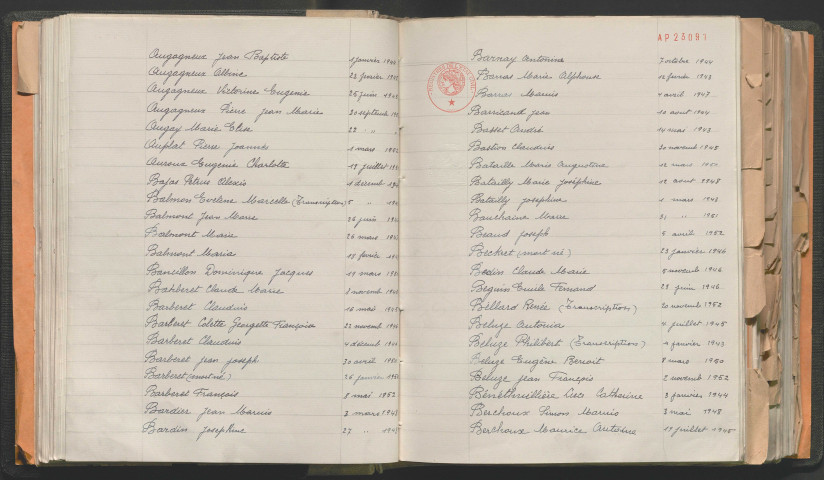 Augagneux Jean Baptiste 1 janvier
Augagneux Albine 22 février
Augagneux Victorine Eugénie 25 juin
Augagneux Pierre Jean Marie 30 septembre
Augay Marie Elisa 22 "
Auplat Pierre Joannès 1 mars
Auroux Eugénie Charlotte 19 juillet
Bajas Petrus Alexis décemb
Balmon Eveline Marcelle (Transcription) 5 "
Balmont Jean Marie 26 juin
Balmont Marie 26 mars
Balmont Maria février
Bancillon Dominique Jacques 11 mars
Barberet Claude Marie 2 novemb
Barberet Claudius 16 mai
Barberet Colette Georgette Françoise 22 novemb
Barberet Claudius 4 décemb
Barberet Jean Joseph 30 avril
Barberet (mort né) 26 janvier
Barberet François 8 mai 1952
Bardier Jean Marius 3 mars 1943
Bardin Joséphine 27 " 1945
AP25081
Barnay Antonine 7 octobre 1944
Barras Marie Alphonse 12 février 1943
Barras Marius 4 avril 1947
Barricand Jean 10 août 1944
Basset André 14 mai 1943
Bastion Claudius 30 novemb 1945
Bataille Marie Augustine 12 mars
Batailly Marie Joséphine 12 août 1948
Batailly Joséphine 1 mars 1943
Bauchaine Marie 31 " 1951
Beaud Joseph 5 avril 1952
Béchet (mort né) 23 janvier 1946
Bedin Claude Marie 5 novemb 1946
Béguin Emile Fernand 23 juin 1946
Bellard Renée (Transcription) 20 novemb 1952
Beluze Antonia 4 juillet 1945
Beluze Philibert (Transcription) 4 janvier 1943
Beluze Eugène Benoit 8 mars 1950
Beluze Jean François 2 novemb 1952
Bénéthuillière Catherine 3 janvier 1944
Berchoux Simon Marius 3 mai 1948
Berchoux Maurice Antoine 19 juillet 1945